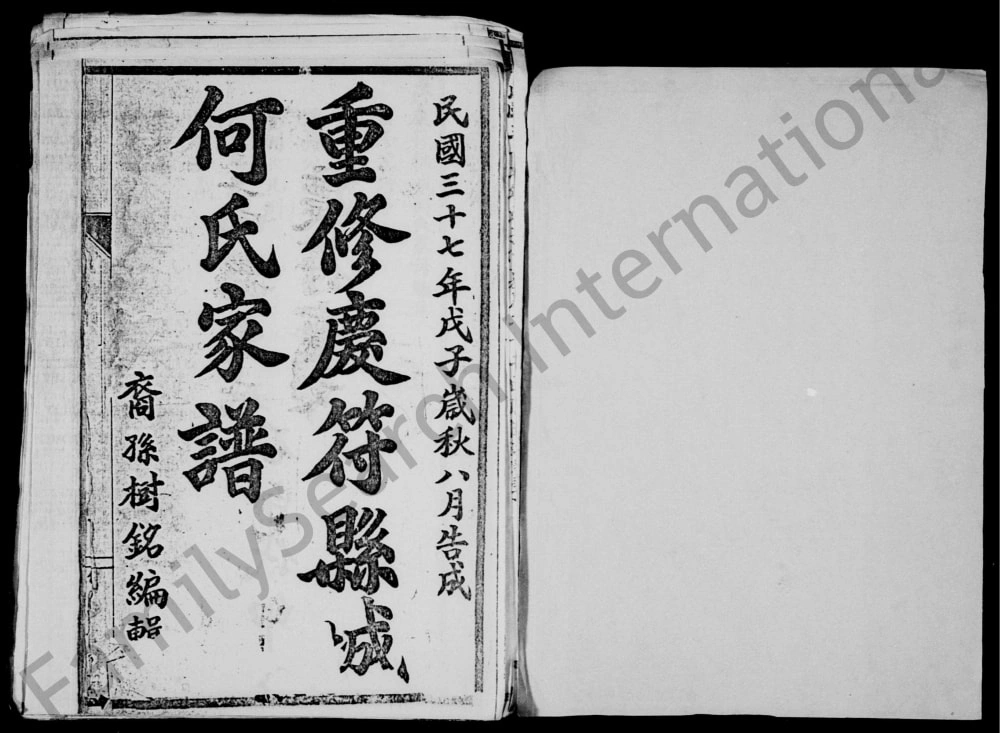 民國三十七年戊子歲秋八月告成
重修慶符縣城
何氏家譜
裔孫樹銘編輯
FamilySearch International